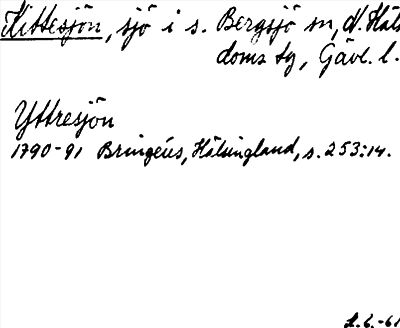 Kittesjön, sjö i s. Bergsjö sn, N. Häls
doms tg, Gävl. l.
Yttresjön
1790-91 Bringéus, Hälsingland, s. 253:14.
L. 6. -61